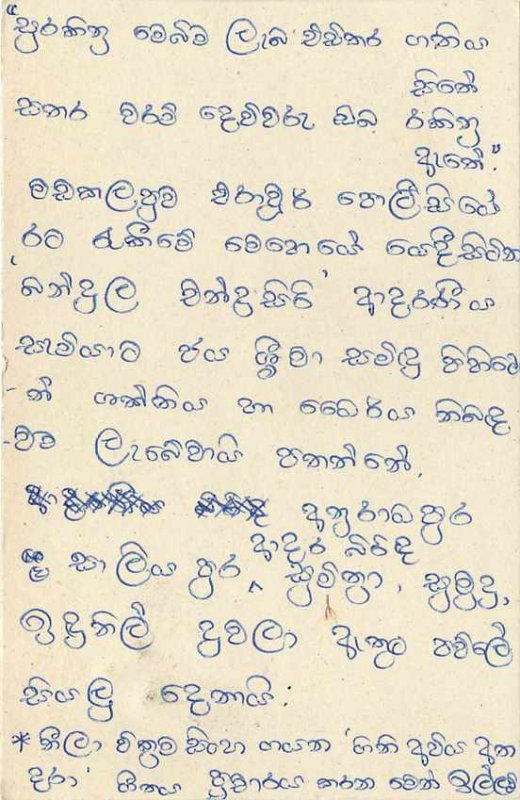 "සුරකිනු මෙබිම ලැබ එඩිතර ගතිය
සිතේ
සතර වරම් දෙව්වරු ඔබ රකිනු
ඇතේ."
මඩකලපුව එරාවූර් පොලීසියේ
රට රැකීමේ මෙහෙයේ යෙදීසිටින
'බන්දුල චන්ද්‍රසිරි' ආදරණීය
සැමියාට ජය ශ්‍රී මා සමිඳු පිහිටෙ
-න් ශක්තිය හා ධෛර්ය නිබඳ
-වව ලැබේවායි පතන්නේ.
අනුරාධපුර
ආදර බිරිඳ
සාලිය පුර ^ සුමිත්‍රා, සුමුදු,
ඉදුනිල් දූවලා ඇතුළු පව්ලේ
සියලු දෙනායි.
* නීලා වික්‍රමසිංහ ගයන 'ගිනි අවිය අත
දරා' ගීතය ප්‍රචාරය කරන මෙන් ඉල්ලමි